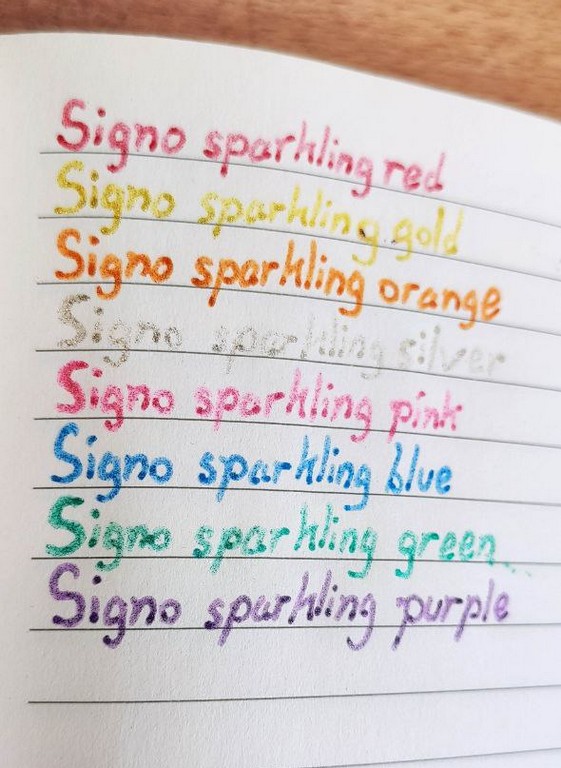 Signo sparkling red
Signo sparkling gold
Signo sparkling orange
Signo sparkling silver
Signo sparkling pink
Signo sparkling blue
Signo sparkling green
Signo sparkling purple